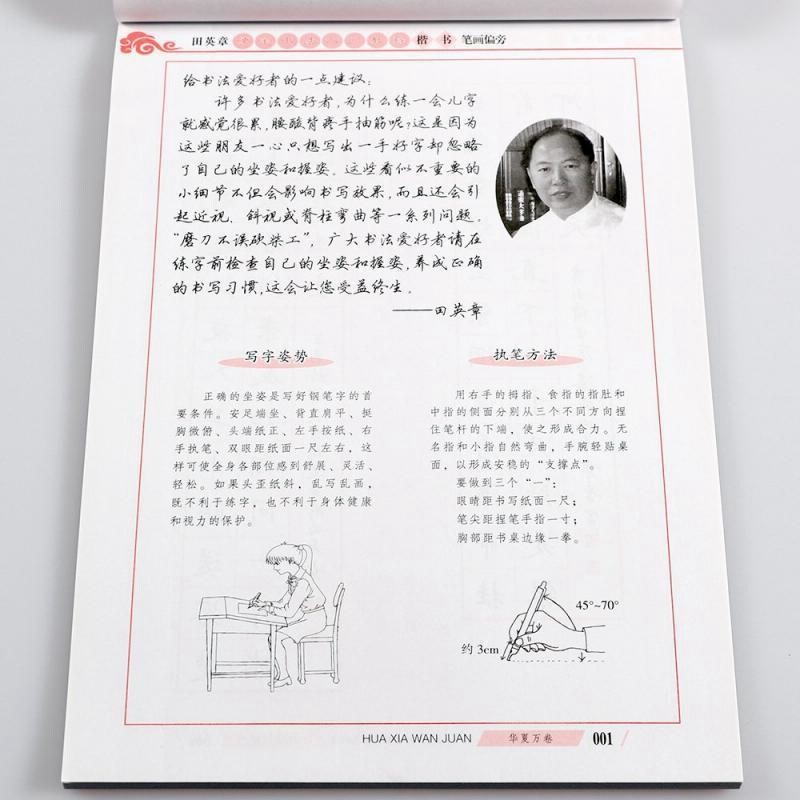 田英章
楷书 笔画偏旁
给书法爱好者的一点建议：
许多书法爱好者，为什么练一会儿字
就感觉很累，腰酸背疼手抽筋呢？这是因为
这些朋友一心只想写出一手好字却忽略
了自己的坐姿和握姿。这些看似不重要的
小细节不但会影响书写效果，而且还会引
起近视、斜视或脊柱弯曲等一系列问题。
“磨刀不误砍柴工”，广大书法爱好者请在
练字前检查自己的坐姿和握姿，养成正确
的书写习惯，这会让您受益终生。
——田英章
写字姿势
正确的坐姿是写好钢笔字的首
要条件。安足端坐、背直肩平、挺
胸微俯、头端纸正、左手按纸、右
手执笔、双眼距纸面一尺左右，这
样可使全身各部位感到舒展、灵活、
轻松。如果头歪纸斜，乱写乱画，
既不利于练字，也不利于身体健康
和视力的保护。
执笔方法
用右手的拇指、食指的指肚和
中指的侧面分别从三个不同方向捏
住笔杆的下端，使之形成合力。无
名指和小指自然弯曲，手腕轻贴桌
面，以形成安稳的“支撑点”。
要做到三个“一”：
眼睛距书写纸面一尺；
笔尖距捏笔手指一寸；
胸部距书桌边缘一拳。
45°~70°
约3cm
HUA XIA WAN JUAN 华夏万卷 001